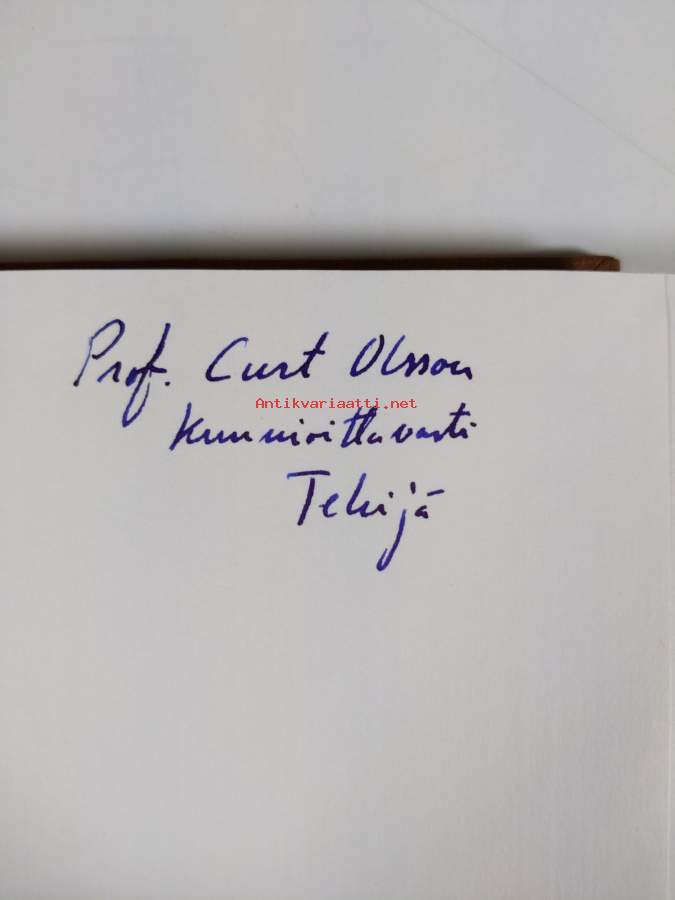 Prof. Curt Olsson
Antikvariaatti.net
Kunnioittavasti
Tekijä